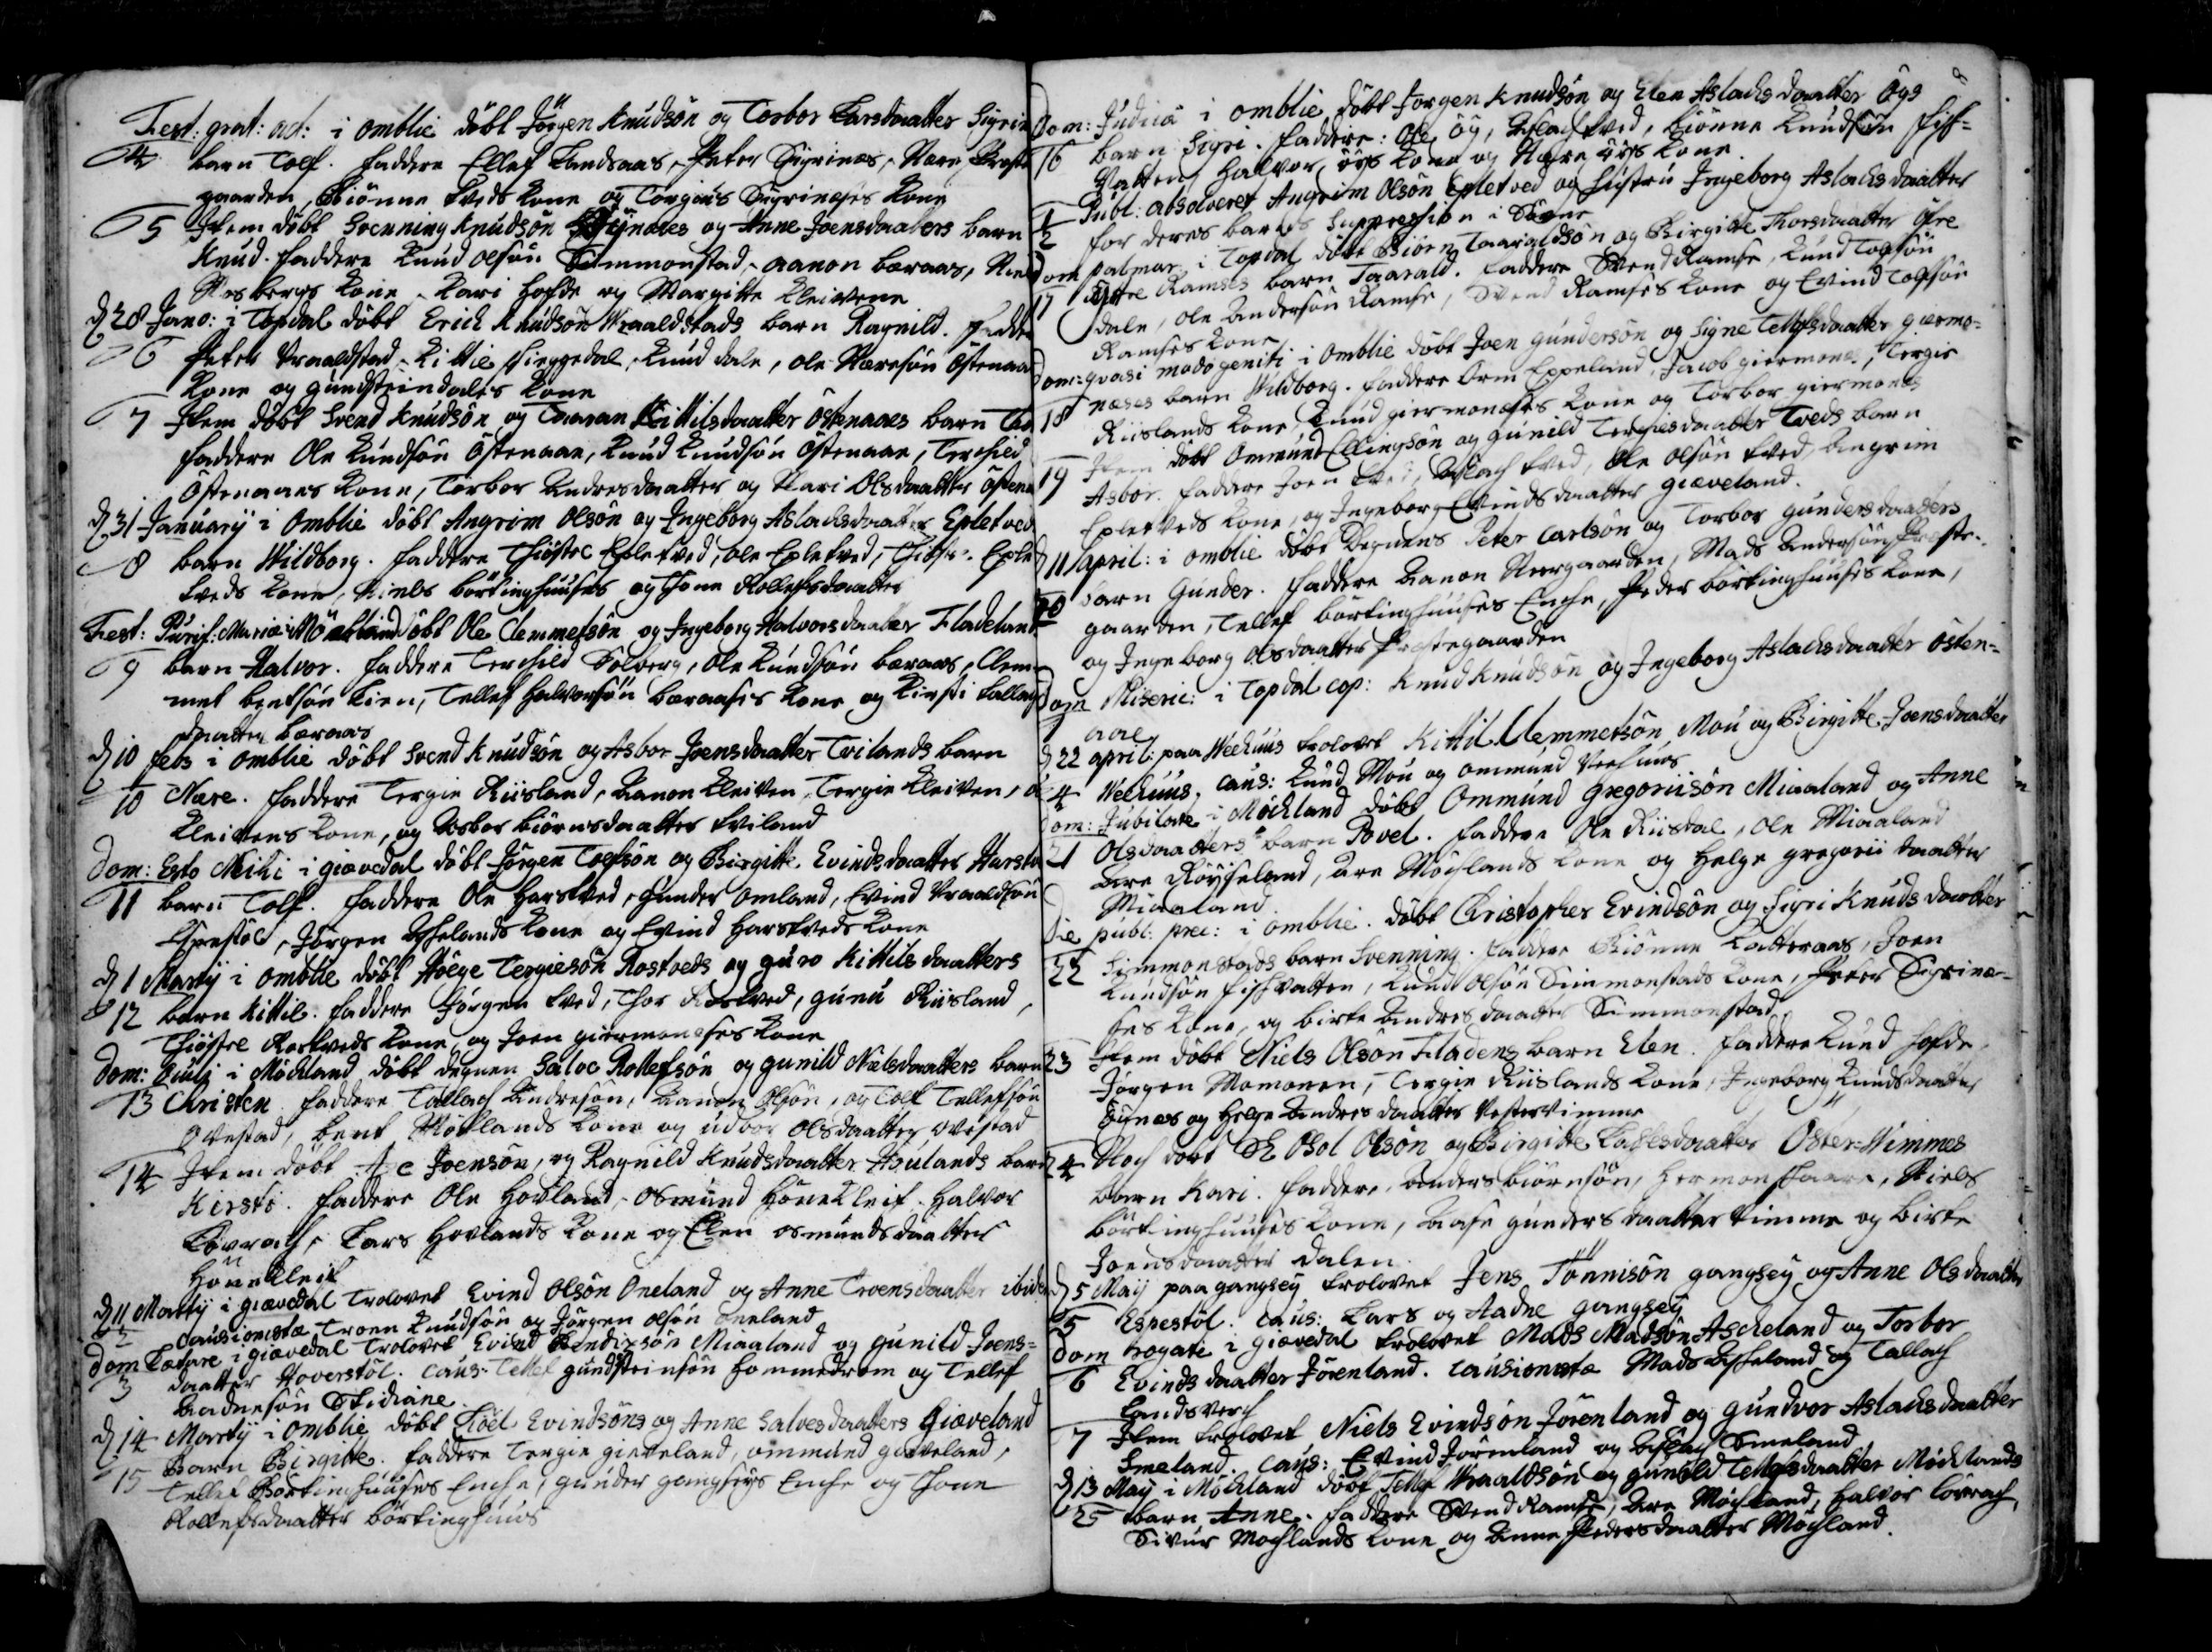 Fest: grat: act: i omblie döbt Jörgen Knudsön og Torbor Larsdaatter Sigrin
4 barn Tolf. faddere Ellef Landsaas, Peter Sigrinæs, Nare Preste
gaarden, Biönne Tveds kone og Torgius Sigrinæses kone
5 Item döbt Svenning Knudsön og Anne Joensdaatters barn
Knud. faddere Knud olsön Simmonstad, Aanon beraas,
kone, Kari hofde og Margitte Kleivene
d 28 Jano: i Topdal döbt Erich Knudsön Wraaldstads barn Ragnild. fadde
6 Peter Vraaldstad, Kittie, Knud dale, ole Næresön Östenaa
kone og gundsteindalis kone
7 Item döbt Svend Knudsön og Taaran Kittilsdaatter östenaaes barn
faddere Ole Knudsön östenaae, Knud Knudsön östenaae, Terchild
östenaaes kone, Torbor Andersdaatter og Kari Olsdaatter östena
d 31 Januarij i omblie döbt Angrim Olsön og Ingeborg Aslachsdaatter Epletved
8 barn Wildborg. faddere Thiöstel Epletved, ole Epletved, Eple
tveds kone, Niels börtinghuuses og Thone Rollefsdaatter
Fest: Purif: Mariæ i döbt Ole Clemmetsön og Ingeborg Halvorsdaatter Fladeland
9 barn Halvor. faddere Terchild Solberg, ole Knudsön beraas, Clem
met bentsön Lien, Tellef halvorsön beraases kone og Kirsti Tallag
daatter beraas
d 10 feb: i omblie döbt Svend Knudsön og Asbor Joensdaatter Tvilands barn
10 Nære. faddere Tergie Riisland, Aanon Kleiven, Tergie Kleiven,
Kleivens kone, og Asbor biörnsdaatter Tviland
Dom: Esto Mihi i giævedal döbt Jörgen Toefsön og Birgitte Evindsdaatter
11 barn Tolf. faddere Ole harstved, gunder omland, Evind Vraaldsön
Espestöl, Jörgen kone og Evind harstveds kone
d 1 Martij i omblie döbt Höege Tergiesön Rostveds og guro Kittilsdaatters
12 barn Kittil. faddere Jörgen Tved, Thor Rostved, gunu Riisland,
Thiöstel Rostveds kone, og Joen giermoneses kone
Dom: i Möckland döbt degnen Salve Rollefsön og gunild Nielsdaatters barn
13 Christen. faddere Tallach Andersön, Aanon olsön, og Tolf Tellefsön
ovestad, bent Möcklands kone og udbor olsdaatter ovestad
14 Item döbt Are Joensön, og Ragnild Knudsdaatter Asulands barn
Kirsti. faddere Ole hovland, osmund hönekleif, halvor
Lövrach, Lars hovlands kone og Elen osmundsdaatter
hönekleif
d 11 Martij i giævedal Trolovet Evind Olsön Oneland og Anne Troensdaatter ibidem
2 Cautionistæ Troen Knudsön og Jörgen olsön oneland
Dom Lætare i giævedal Trolovet Evind Bendixsön Miaaland og gunild Joens=
3 daatter Hoverstöl. Caus: Tellef gundsteinsön hommedrom og Tellef
Aadnesön Skidiane.
d 14 Martij i omblie döbt Evindsöns og Anne Salvesdaatters Giæveland
15 Barn Birgitte. faddere Tergie gieveland, ommund gæveland,
Tellef Börtinghuuses Enche, gunder gangseys Enche og Thone
Rollefsdaatter börtinghuus
Dom: Judica i omblie döbt Jörgen Knudsön og Elen Aslachsdaatter Öys
16 barn Sigri. faddere: Ole öy, Aslach Tved, biönne Knudsön fisch=
Vatten, halvor öys kone og Nære öys kone.
1 Publ: absolveret Angrim Olsön Epletved og hustru Ingeborg Aslachsdaatter
2 for deres barns Suppression i Söune
Dom palmar: i Topdal döbt Biörn Taaraldsön og Birgitte Thorsdaatter öfre
17 Ramses barn Taarald. faddere Svend Ramse, Knud Tolfsön
dale, ole Andersön Ramse, Svend Ramses kone og Evind Tolfsön
Ramses kone
Dom: qvasi modogeniti i omblie döbt Joen gundersön og Signe Tellefsdaatter giermo=
18 næses barn Wildborg. faddere Orm Eppeland, Jacob giermones, Tergie
Riislands kone, Knud giermoneses kone og Torbor giermones
19 Item döbt Ommund Ellingsön og gunild Tergiesdaatter Tveds barn
Asbor. faddere Joen Tved, Aslach Tved, Ole olsön Tved, Angrim
Epletveds kone, og Ingeborg Evindsdaatter giæveland.
d 11 April: i omblie döbt Degnens Peter Carlsön og Torbor gundersdaatters
20 barn Gunder. faddere Aanon Nærgaarden, Mads Andersön Preste=
gaarden, Tellef börtinghuuses Enche, Peder börtinghuuses kone,
og Ingeborg olsdaatter Prestegaarden
Dom Miseric: i Topdal cop: Knud Knudsön og Ingeborg Aslachsdaatter östen=
aae
d 22 april: paa Veehuus trolovet Kittil Clemmetsön Mou og Birgitte Joensdaatter
4 Weehuus. Caus: Knud Mou og ommund Veehuus
Dom: Jubilate i Möckland döbt Ommund Gregoriisön Miaaland og Anne
21 Olsdaatters barn Povel. faddere Ole Riisdal, Ole Miaaland
Are Röyseland, Are Möchlands kone og helge gregorii daatter
Miaaland
Die publ: prec: i omblie. döbt Christopher Evindsön og Sigri Knudsdaatter
22 Simmonstads barn Svenning. faddere Biönne Katteraas, Joen
Knudsön fischvatten, Knud olsön Simmonstads kone, Peter Sigrinæ=
ses kone, og birte Andersdaatter Simmonstad
23 Item döbt Niels Olsön Fladens barn Elen. faddere Knud hofde,
Jörgen Momonen, Tergie Riislands kone, Ingeborg Knudsdaatter
og helge Andersdaatter Vestervimme
24 Noch döbt Osol Olsön og Birgitte Oster=Wimmes
barn Kari. faddere Anders biörnsön, hermon, Niels
börtinghuuses kone, Aase gundersdaatter Vimme og birte
Joensdaatter dalen.
d 5 Maij paa gangsey trolovet Jens Tönnisön gangsey og Anne Olsdaatter
5 Espestöl. Caus: Lars og Aadne gangsey
Dom rogate i giævedal trolovet Mads Madsön Ascheland og Torbor
6 Evindsdaatter Jörenland. Cautionistæ Mads Ascheland og Tallach
Landsverch
7 Item trolovet Niels Evindsön Jörenland og gundvor Aslachsdaatter
Smeland. Caus: Evind Jörenland og Aslach Smeland
d 13 Maij i Möchland döbt Tellef Wraaldsön og gunild Tellefsdaatter Möchlands
25 barn Anne. faddere Svend Ramse, Are Möchland, halvor Lövrach,
Sivur Mochlands kone og Anne Pedersdaatter Möchland.